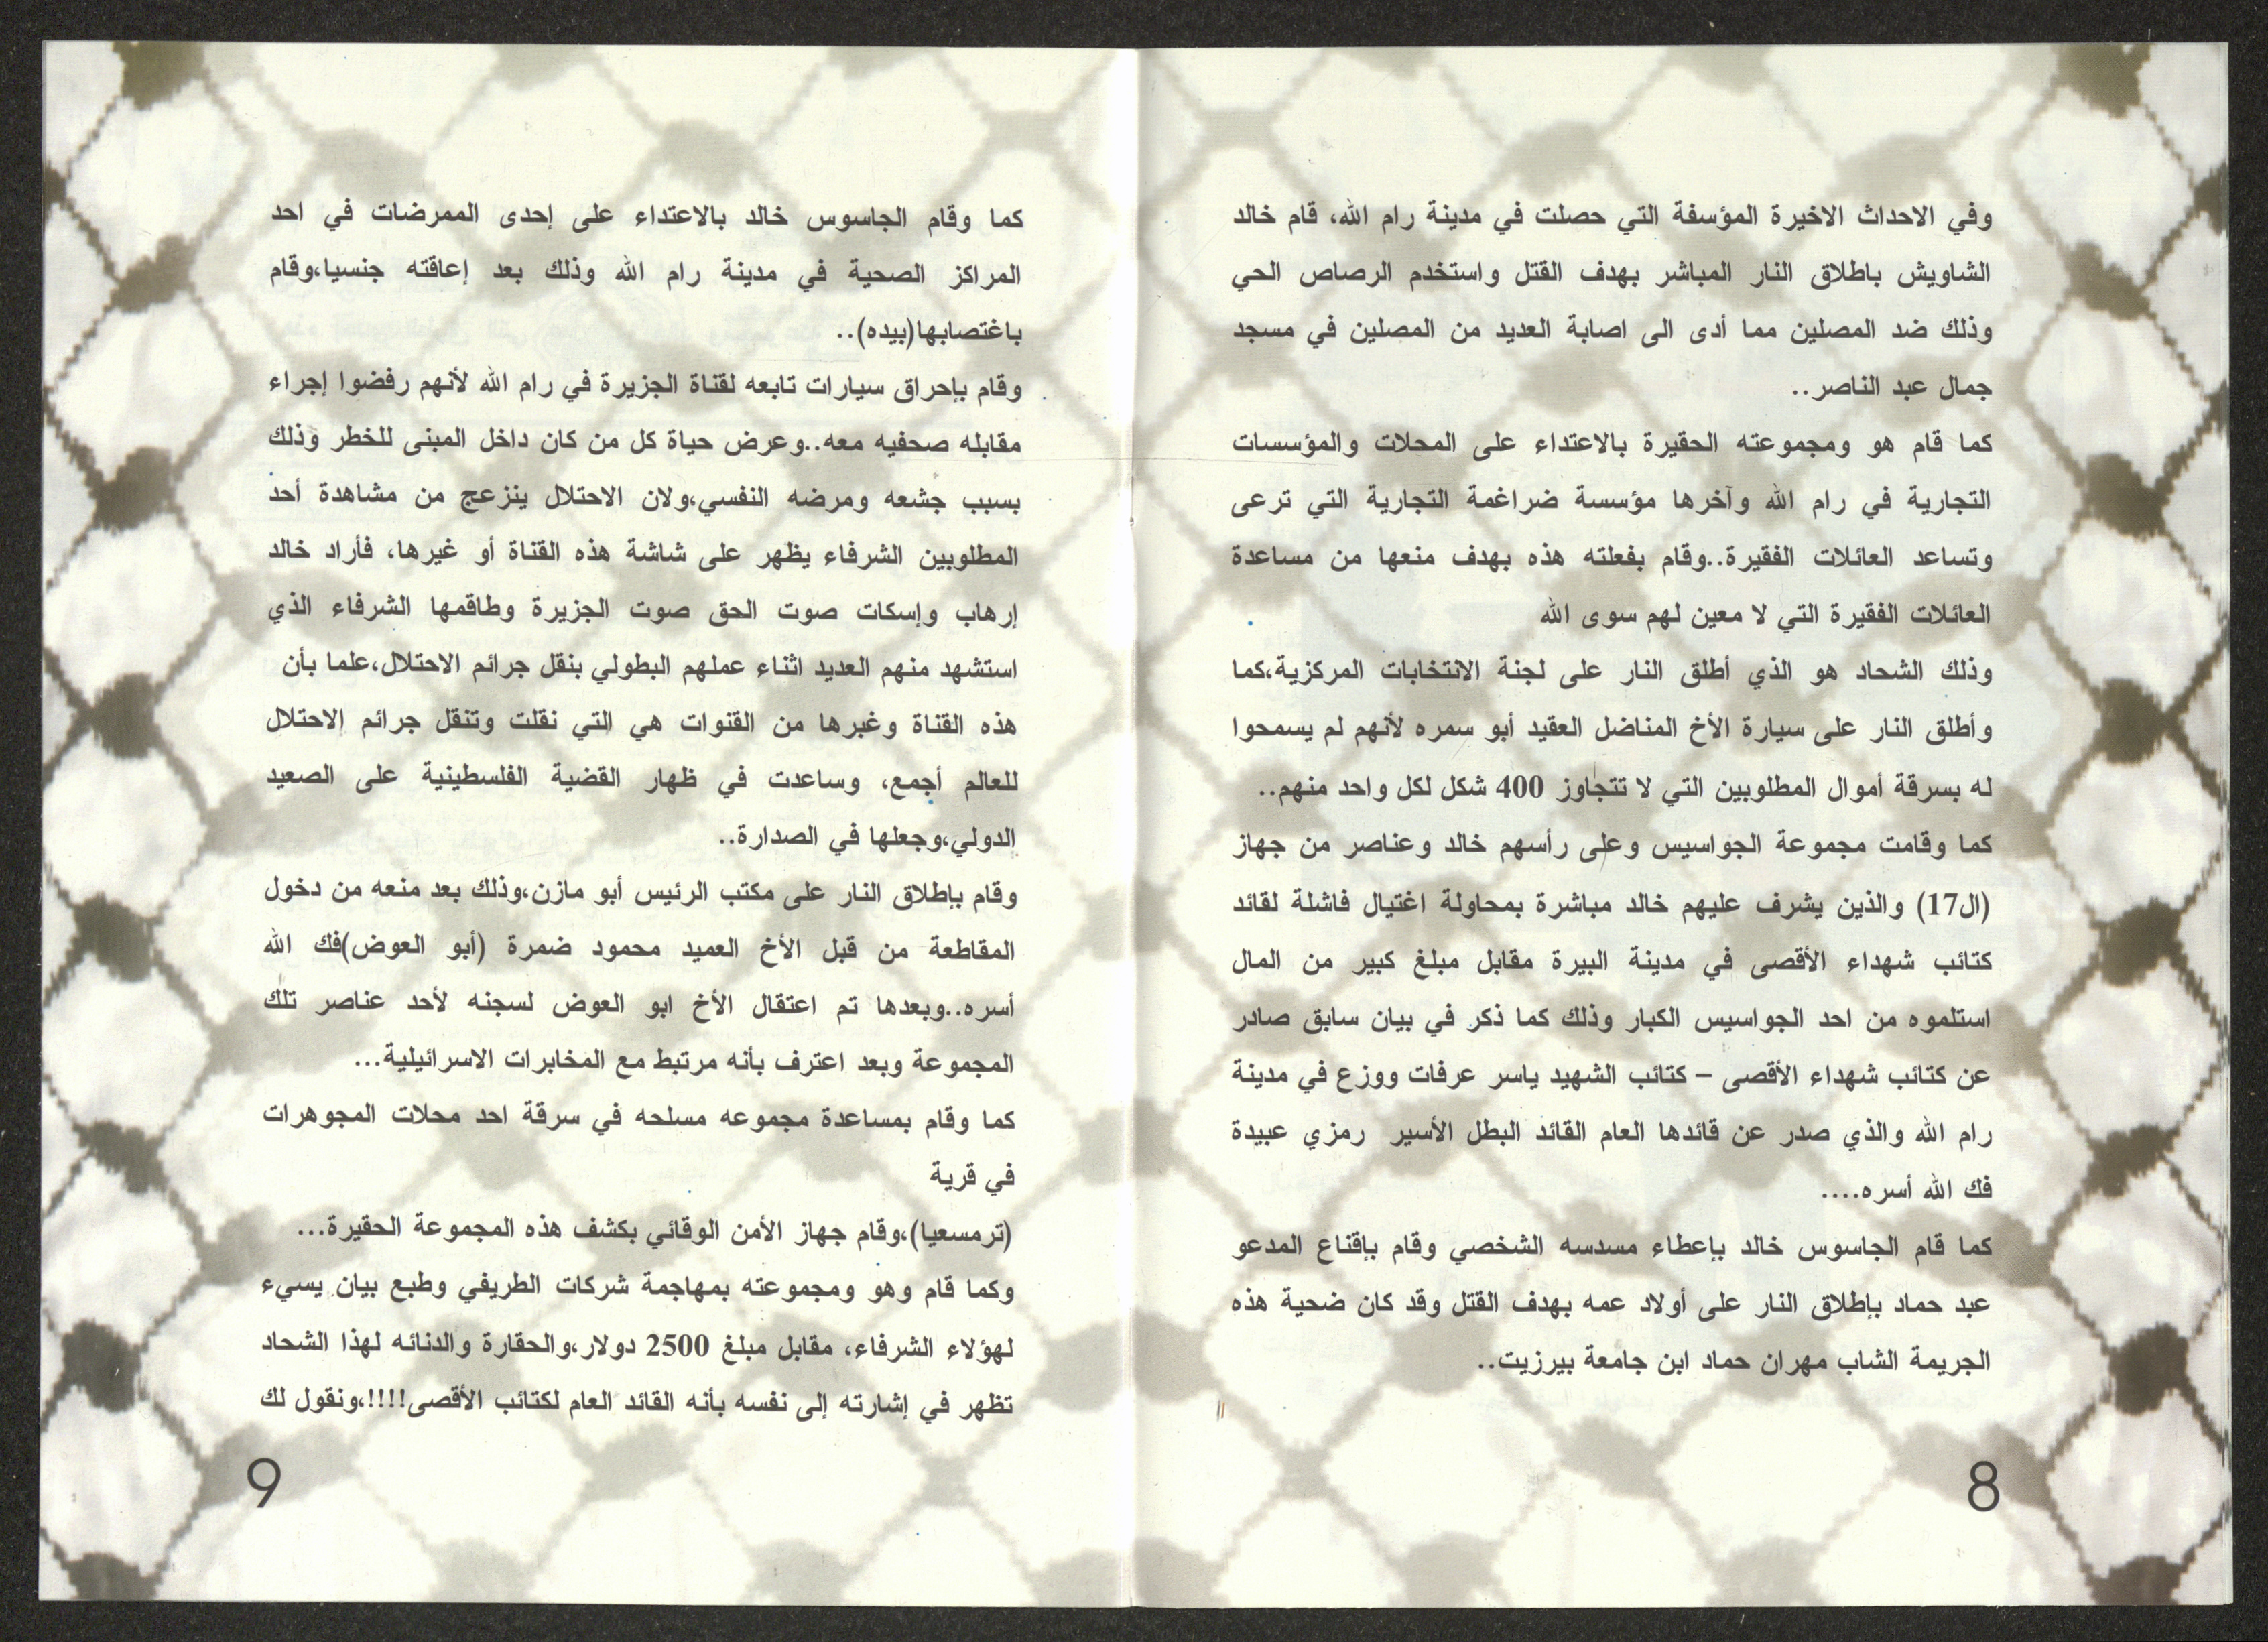 وفي الاحداث الاخيرة المؤسفة التي حصلت في مدينة رام الله، قام خالد
الشاويش باطلاق النار المباشر بهدف القتل واستخدم الرصاص الحي
وذلك ضد المصلين مما أدى الى اصابة العديد من المصلين في مسجد
جمال عبد الناصر..
كما قام هو ومجموعته الحقيرة بالاعتداء على المحلات والمؤسسات
التجارية في رام الله وآخرها مؤسسة ضراغمة التجارية التي ترعى
وتساعد العائلات الفقيرة..وقام بفعلته هذه بهدف منعها من مساعدة
العائلات الفقيرة التي لا معين لهم سوى الله
وذلك الشحاد هو الذي أطلق النار على لجنة الانتخابات المركزية،كما
وأطلق النار على سيارة الأخ المناضل العقيد أبو سمره لأنهم لم يسمحوا
له بسرقة أموال المطلوبين التي لا تتجاوز 400 شكل لكل واحد منهم..
كما وقامت مجموعة الجواسيس وعلى رأسهم خالد وعناصر من جهاز
(ال17) والذين يشرف عليهم خالد مباشرة بمحاولة اغتيال فاشلة لقائد
كتائب شهداء الأقصى في مدينة البيرة مقابل مبلغ كبير من المال
استلموه من احد الجواسيس الكبار وذلك كما ذكر في بيان سابق صادر
عن كتائب شهداء الأقصى – كتائب الشهيد ياسر عرفات ووزع في مدينة
رام الله والذي صدر عن قائدها العام القائد البطل الأسير رمزي عبيدة
فك الله أسره....
كما قام الجاسوس خالد بإعطاء مسدسه الشخصي وقام بإقناع المدعو
عبد حماد بإطلاق النار على أولاد عمه بهدف القتل وقد كان ضحية هذه
الجريمة الشاب مهران حماد ابن جامعة بيرزيت..
8
كما وقام الجاسوس خالد بالاعتداء على إحدى الممرضات في احد
المراكز الصحية في مدينة رام الله وذلك بعد إعاقته جنسيا،وقام
باغتصابها(بيده)..
وقام بإحراق سيارات تابعه لقناة الجزيرة في رام الله لأنهم رفضوا إجراء
مقابله صحفيه معه..وعرض حياة كل من كان داخل المبنى للخطر وذلك
بسبب جشعه ومرضه النفسي،ولان الاحتلال ينزعج من مشاهدة أحد
المطلوبين الشرفاء يظهر على شاشة هذه القناة أو غيرها، فأراد خالد
إرهاب وإسكات صوت الحق صوت الجزيرة وطاقمها الشرفاء الذي
استشهد منهم العديد اثناء عملهم البطولي بنقل جرائم الاحتلال،علما بأن
هذه القناة وغبرها من القنوات هي التي نقلت وتنقل جرائم الاحتلال
للعالم أجمع، وساعدت في ظهار القضية الفلسطينية على الصعيد
الدولي،وجعلها في الصدارة..
وقام بإطلاق النار على مكتب الرئيس أبو مازن،وذلك بعد منعه من دخول
المقاطعة من قبل الأخ العميد محمود ضمرة (أبو العوض)فك الله
أسره..وبعدها تم اعتقال الأخ ابو العوض لسجنه لأحد عناصر تلك
المجموعة وبعد اعترف بأنه مرتبط مع المخابرات الاسرائيلية...
كما وقام بمساعدة مجموعه مسلحه في سرقة احد محلات المجوهرات
في قرية
(ترمسعيا)،وقام جهاز الأمن الوقائي بكشف هذه المجموعة الحقيرة...
وكما قام وهو ومجموعته بمهاجمة شركات الطريفي وطبع بيان يسيء
لهؤلاء الشرفاء، مقابل مبلغ 2500 دولار،والحقارة والدنائه لهذا الشحاد
تظهر في إشارته إلى نفسه بأنه القائد العام لكتائب الأقصى!!!!،ونقول لك
9